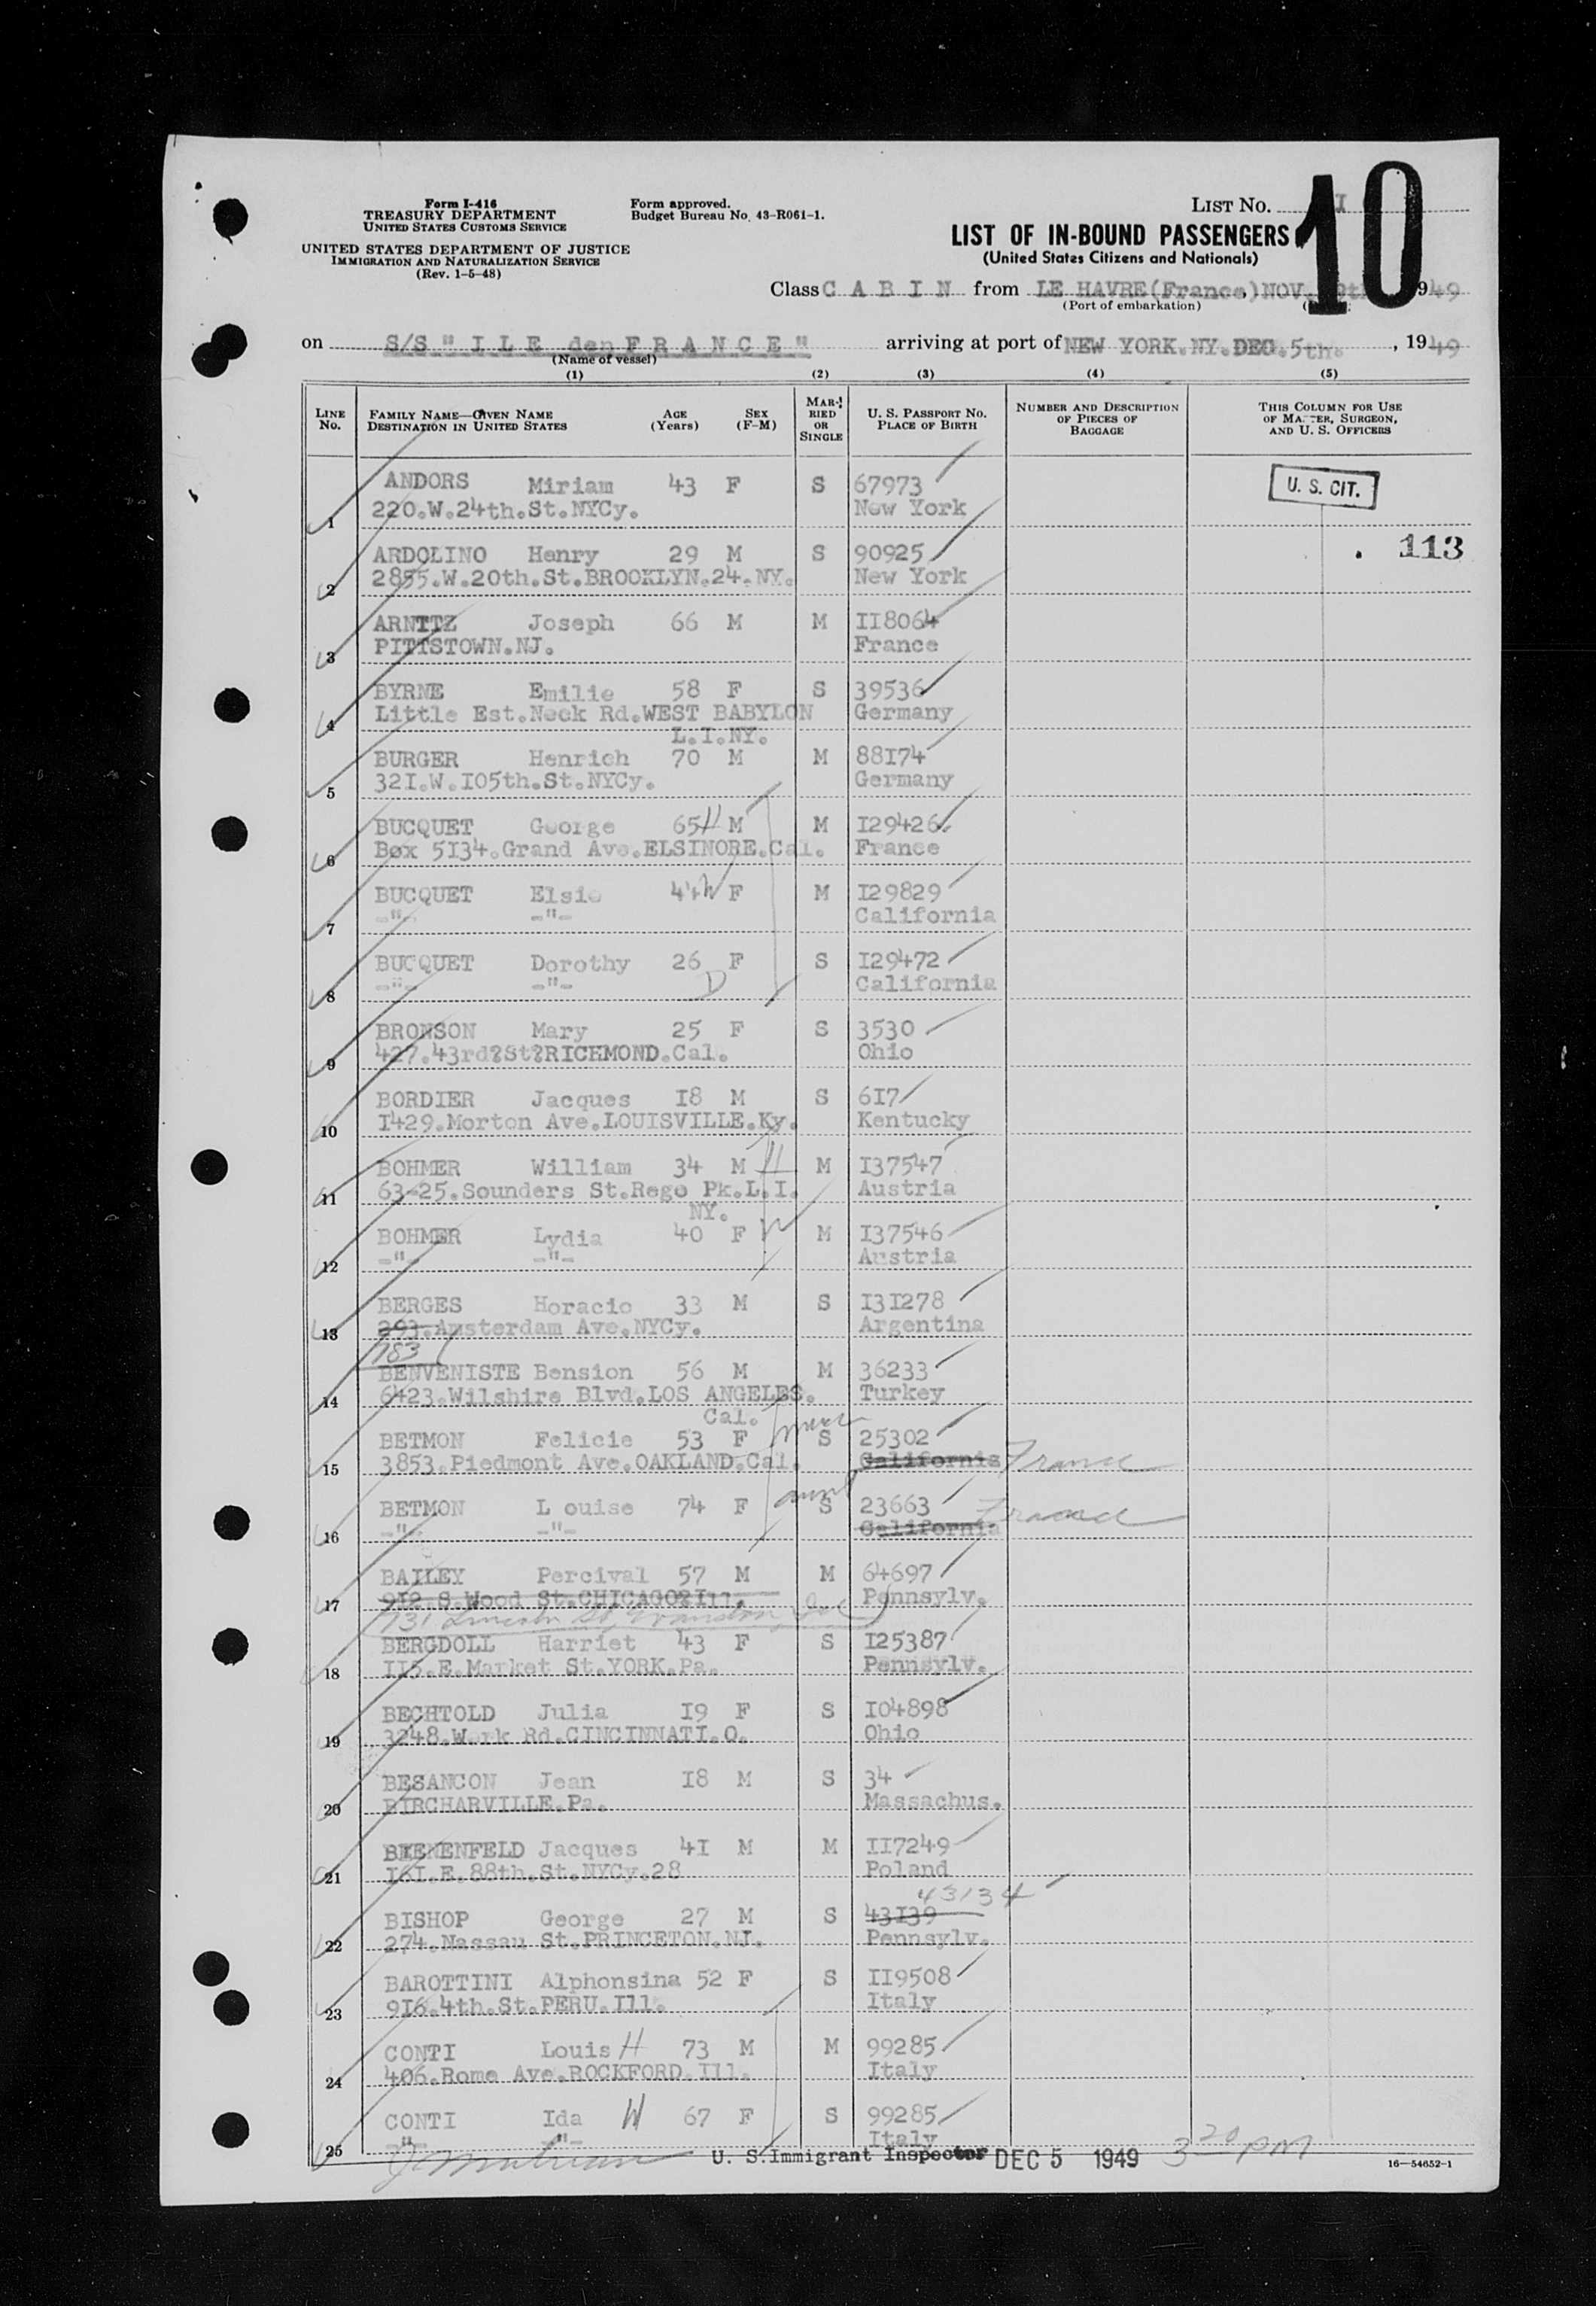 Form I-416
TREASURY DEPARTMENT
UNITED STATES CUSTOMS SERVICE
UNITED STATES DEPARTMENT OF JUSTICE
IMMIGRATION AND NATURALIZATION SERVICE
(Rev. 1-5-48)
Form approved.
Budget Bureau No. 43-R061-1.
LIST No. I
10
LIST OF IN-BOUND PASSENGERS
(United States Citizens and Nationals)
Class C A B I N from LE HAVRE(France) NOV. 1949
(Port of embarkation)
on S/S " I L E de F R A N C E " arriving at port of NEW YORK.NY.DEC.5th. , 1949
(Name of vessel)
(1) (2) (3) (4) (5)
LINE No. FAMILY NAME—GIVEN NAME DESTINATION IN UNITED STATES AGE (Years) SEX (F-M) MARRIED OR SINGLE U. S. PASSPORT No. PLACE OF BIRTH NUMBER AND DESCRIPTION OF PIECES OF BAGGAGE THIS COLUMN FOR USE OF MASTER, SURGEON, AND U. S. OFFICERS
ANDORS Miriam 43 F S 67973 U. S. CIT.
1 220.W.24th.St.NYCy. New York
ARDOLINO Henry 29 M S 90925 . 113
2 2855.W.20th.St.BROOKLYN.24.NY. New York
ARNTTZ Joseph 66 M M II8064
3 PITTSTOWN.NJ. France
BYRNE Emilie 58 F S 39536
4 Little Est.Neck Rd.WEST BABYLON Germany
L.I.NY.
BURGER Henrich 70 M M 88I74
5 32I.W.I05th.St.NYCy. Germany
BUCQUET George 65 H M M I29426.
6 Box 5I34.Grand Ave.ELSINORE.Cal. France
BUCQUET Elsie 44 W F M I29829
7 -"- -"- California
BUCQUET Dorothy 26 F S I29472
8 -"- -"- D California
BRONSON Mary 25 F S 3530
9 427.43rd?St?RICHMOND.Cal. Ohio
BORDIER Jacques I8 M S 6I7
10 I429.Morton Ave.LOUISVILLE.Ky. Kentucky
BOHMER William 34 M H M I37547
11 63-25.Sounders St.Rego Pk.L.I. Austria
NY.
BOHMER Lydia 40 F W M I37546
12 -"- -"- Austria
BERGES Horacio 33 M S I3I278
13 293.Amsterdam Ave.NYCy. Argentina
783
BENVENISTE Bension 56 M M 36233
14 6423.Wilshire Blvd.LOS ANGELES. Turkey
Cal.
BETMON Felicie 53 F niece S 25302
15 3853.Piedmont Ave.OAKLAND.Cal. California France
BETMON L ouise 74 F aunt S 23663
16 -"- -"- California France
BAILEY Percival 57 M M 64697
17 9I2.S.Wood St.CHICAGO?Ill. Pennsylv.
731 Lincoln St, Evanston, Ill
BERGDOLL Harriet 43 F S I25387
18 II5.E.Market St.YORK.Pa. Pennsylv.
BECHTOLD Julia I9 F S I04898
19 3248.Work Rd.CINCINNATI.O. Ohio
BESANCON Jean I8 M S 34
20 BIRCHARVILLE.Pa. Massachus.
BIENENFELD Jacques 4I M M II7249
21 I6I.E.88th.St.NYCy.28 Poland
43134
BISHOP George 27 M S 43I39
22 274.Nassau St.PRINCETON.NJ. Pennsylv.
BAROTTINI Alphonsina 52 F S II9508
23 9I6.4th.St.PERU.Ill. Italy
CONTI Louis H 73 M M 99285
24 406.Rome Ave.ROCKFORD.Ill. Italy
CONTI Ida W 67 F S 99285
25 -"- -"- Italy
U. S. Immigrant Inspector DEC 5 1949 3 20 PM
16—54652-1